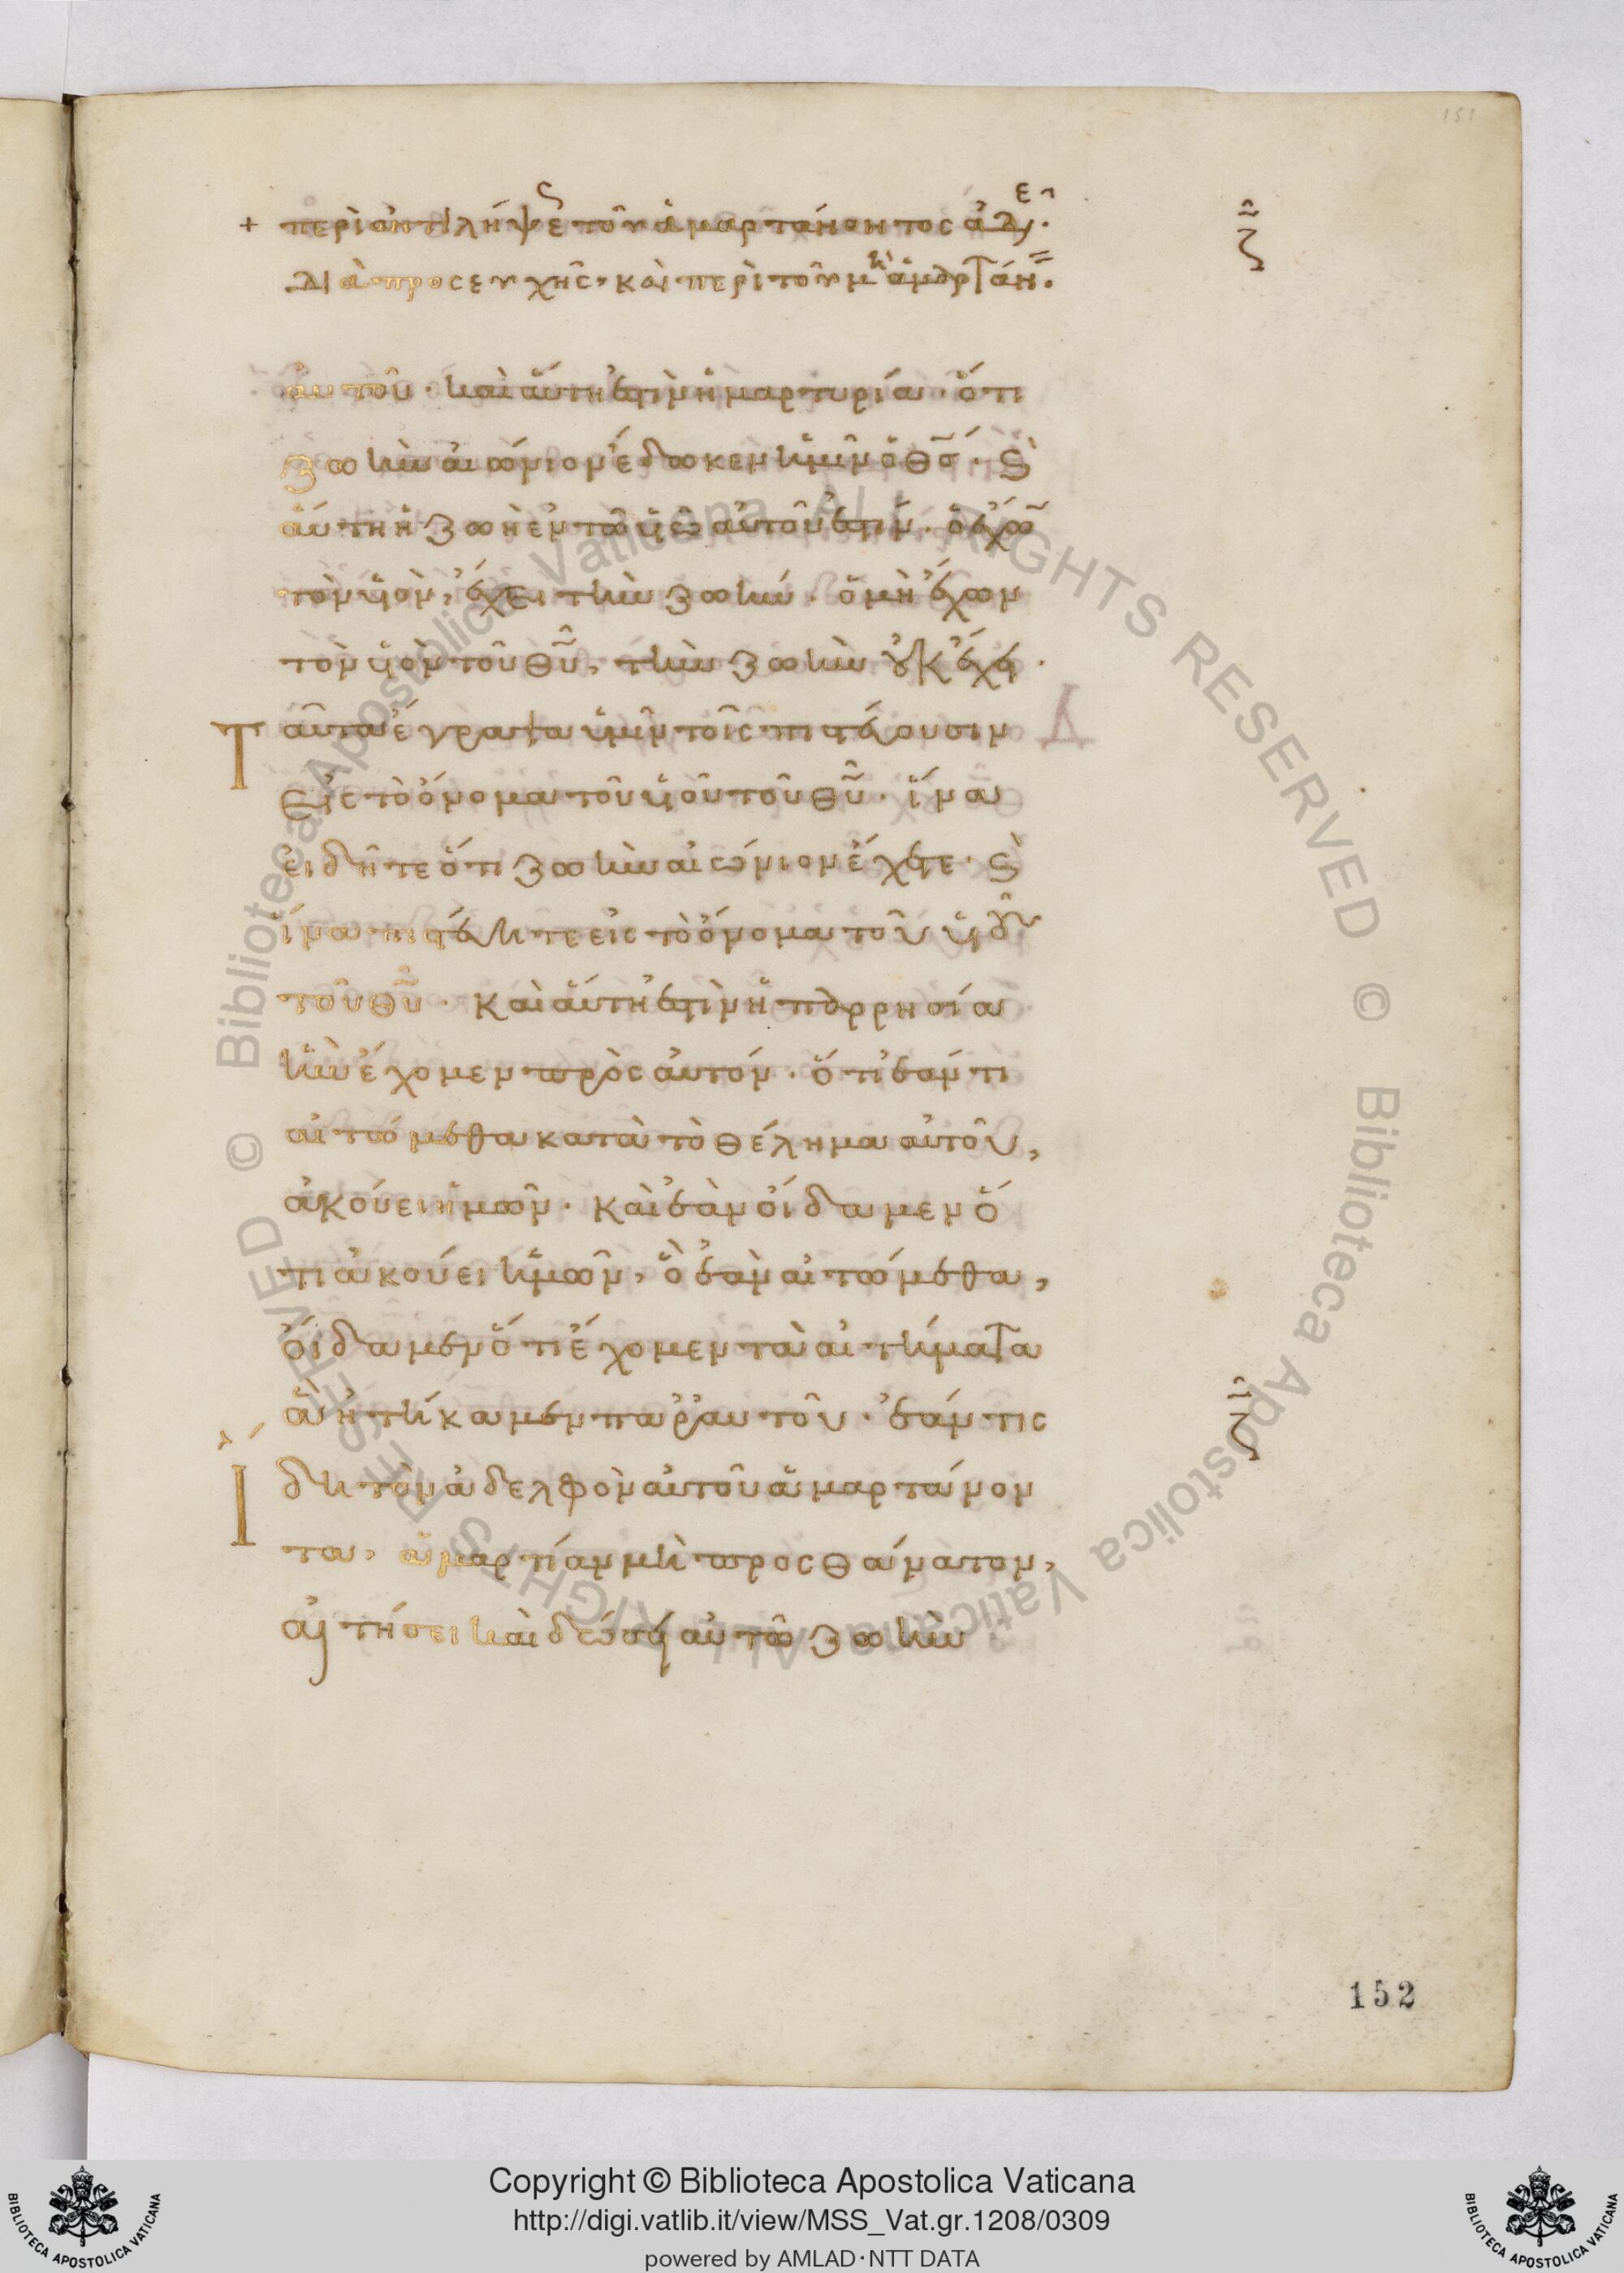 151
+ περὶ ἀντιλήψεως τοῦ ἁμαρτάνοντος ἀδε.
διὰ προσευχῆς, καὶ περὶ τοῦ μὴ ἁμαρτάν.
ζ
αὐτοῦ. καὶ αὕτη ἐστὶν ἡ μαρτυρία. ὅτι
ζωὴν αἰώνιον ἔδωκεν ἡμῖν ὁ θσ. Ϗ
αὕτη ἡ ζωὴ ἐν τῶ υἱῶ αὐτοῦ ἐστίν. ὁ ἔχων
τὸν υἱὸν, ἔχει τὴν ζωήν. ὁ μὴ ἔχων
τὸν υἱὸν τοῦ θῦ, τὴν ζωὴν οὐκ ἔχει.
Ταῦτα ἔγραψα ὑμῖν τοῖς πιστεύουσιν
εἰς τὸ ὄνομα τοῦ υἱοῦ τοῦ θῦ. ἵνα
εἰδῆτε ὅτι ζωὴν αἰώνιον ἔχετε. Ϗ
ἵνα πιστεύητε εἰς τὸ ὄνομα τοῦ υἱοῦ
τοῦ θῦ. καὶ αὕτη ἐστὶν ἡ παρρησία
ἣν ἔχομεν πρὸς αὐτόν. ὅτι ἐάν τι
αἰτώμεθα κατὰ τὸ θέλημα αὐτοῦ,
ἀκούει ἡμῶν. καὶ ἐὰν οἴδαμεν ὅ
τι ἀκούει ἡμῶν, ὃ ἐὰν αἰτώμεθα,
οἴδαμεν ὅτι ἔχομεν τὰ αἰτήματα
ἃ ἠτήκαμεν παρ' αὐτοῦ. ἐάν τις
ζ
Ἴδη τὸν ἀδελφὸν αὐτοῦ ἁμαρτάνον
τα, ἁμαρτίαν μὴ προς θάνατον,
αἰτήσει καὶ δώσει αὐτῶ ζωὴν
152
Copyright © Biblioteca Apostolica Vaticana
http://digi.vatlib.it/view/MSS_Vat.gr.1208/0309
powered by AMLAD·NTT DATA
BIBLIOTECA APOSTOLICA VATICANA
BIBLIOTECA APOSTOLICA VATICANA
© Biblioteca Apostolica Vaticana ALL RIGHTS RESERVED © Biblioteca Apostolica Vaticana ALL RIGHTS RESERVED